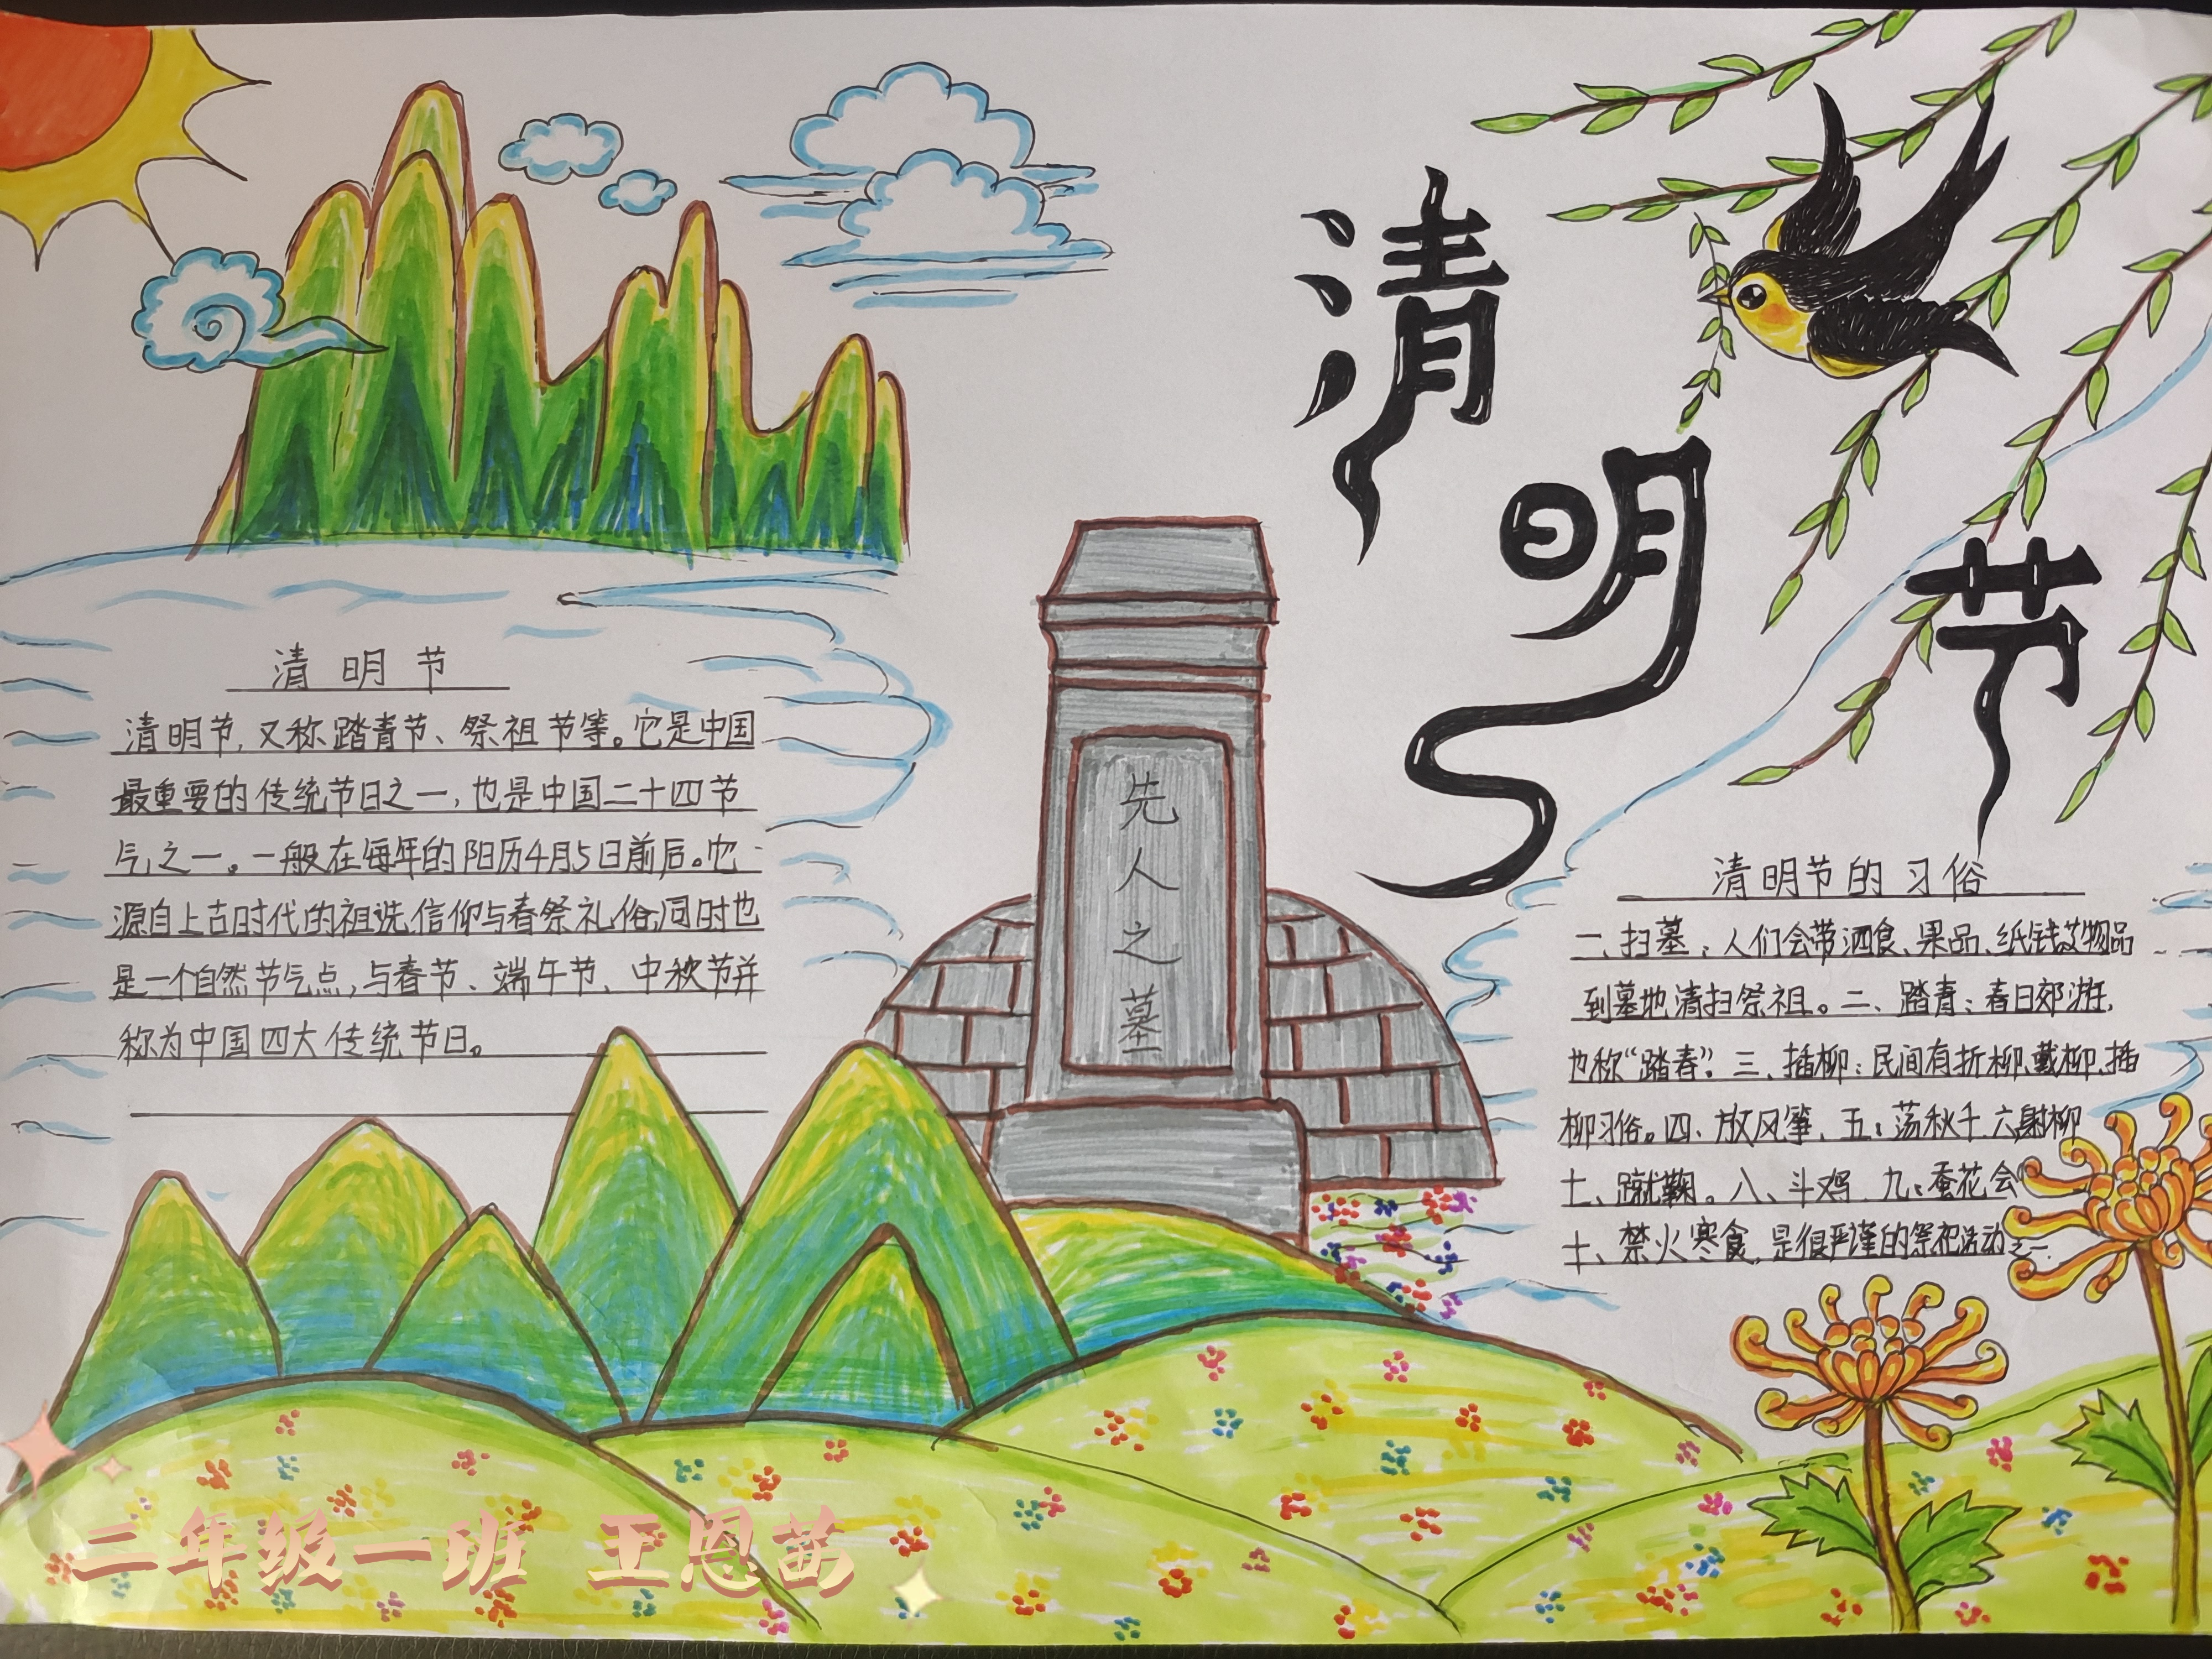 清明节
清明节
清明节,又称踏青节、祭祖节等。它是中国
最重要的传统节日之一,也是中国二十四节
气之一。一般在每年的阳历4月5日前后。它
源自上古时代的祖先信仰与春祭礼俗,同时也
是一个自然节气点,与春节、端午节、中秋节并
称为中国四大传统节日。
先
人
之
墓
清明节的习俗
一、扫墓:人们会带酒食、果品、纸钱等物品
到墓地清扫祭祖。二、踏青:春日郊游,
也称“踏春”。三、插柳:民间有折柳、戴柳、插
柳习俗。四、放风筝、五、荡秋千、六、射柳
七、蹴鞠。八、斗鸡、九、蚕花会
十、禁火寒食,是很严谨的祭祀活动之一.
二年级一班 王恩茜